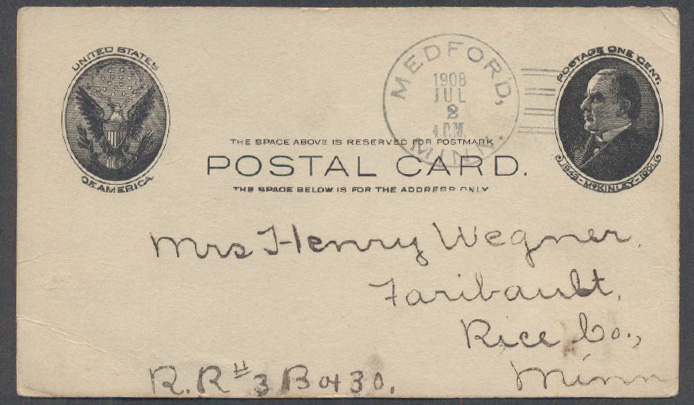 UNITED STATES
OF AMERICA
MEDFORD,
1908
JUL
2
MINN.
POSTAGE ONE CENT.
1843-McKINLEY-1901
THE SPACE ABOVE IS RESERVED FOR POSTMARK
POSTAL CARD.
THE SPACE BELOW IS FOR THE ADDRESS ONLY
Mrs Henry Wegner,
Faribault,
Rice Co.,
Minn
R.R # 3 Box 30.